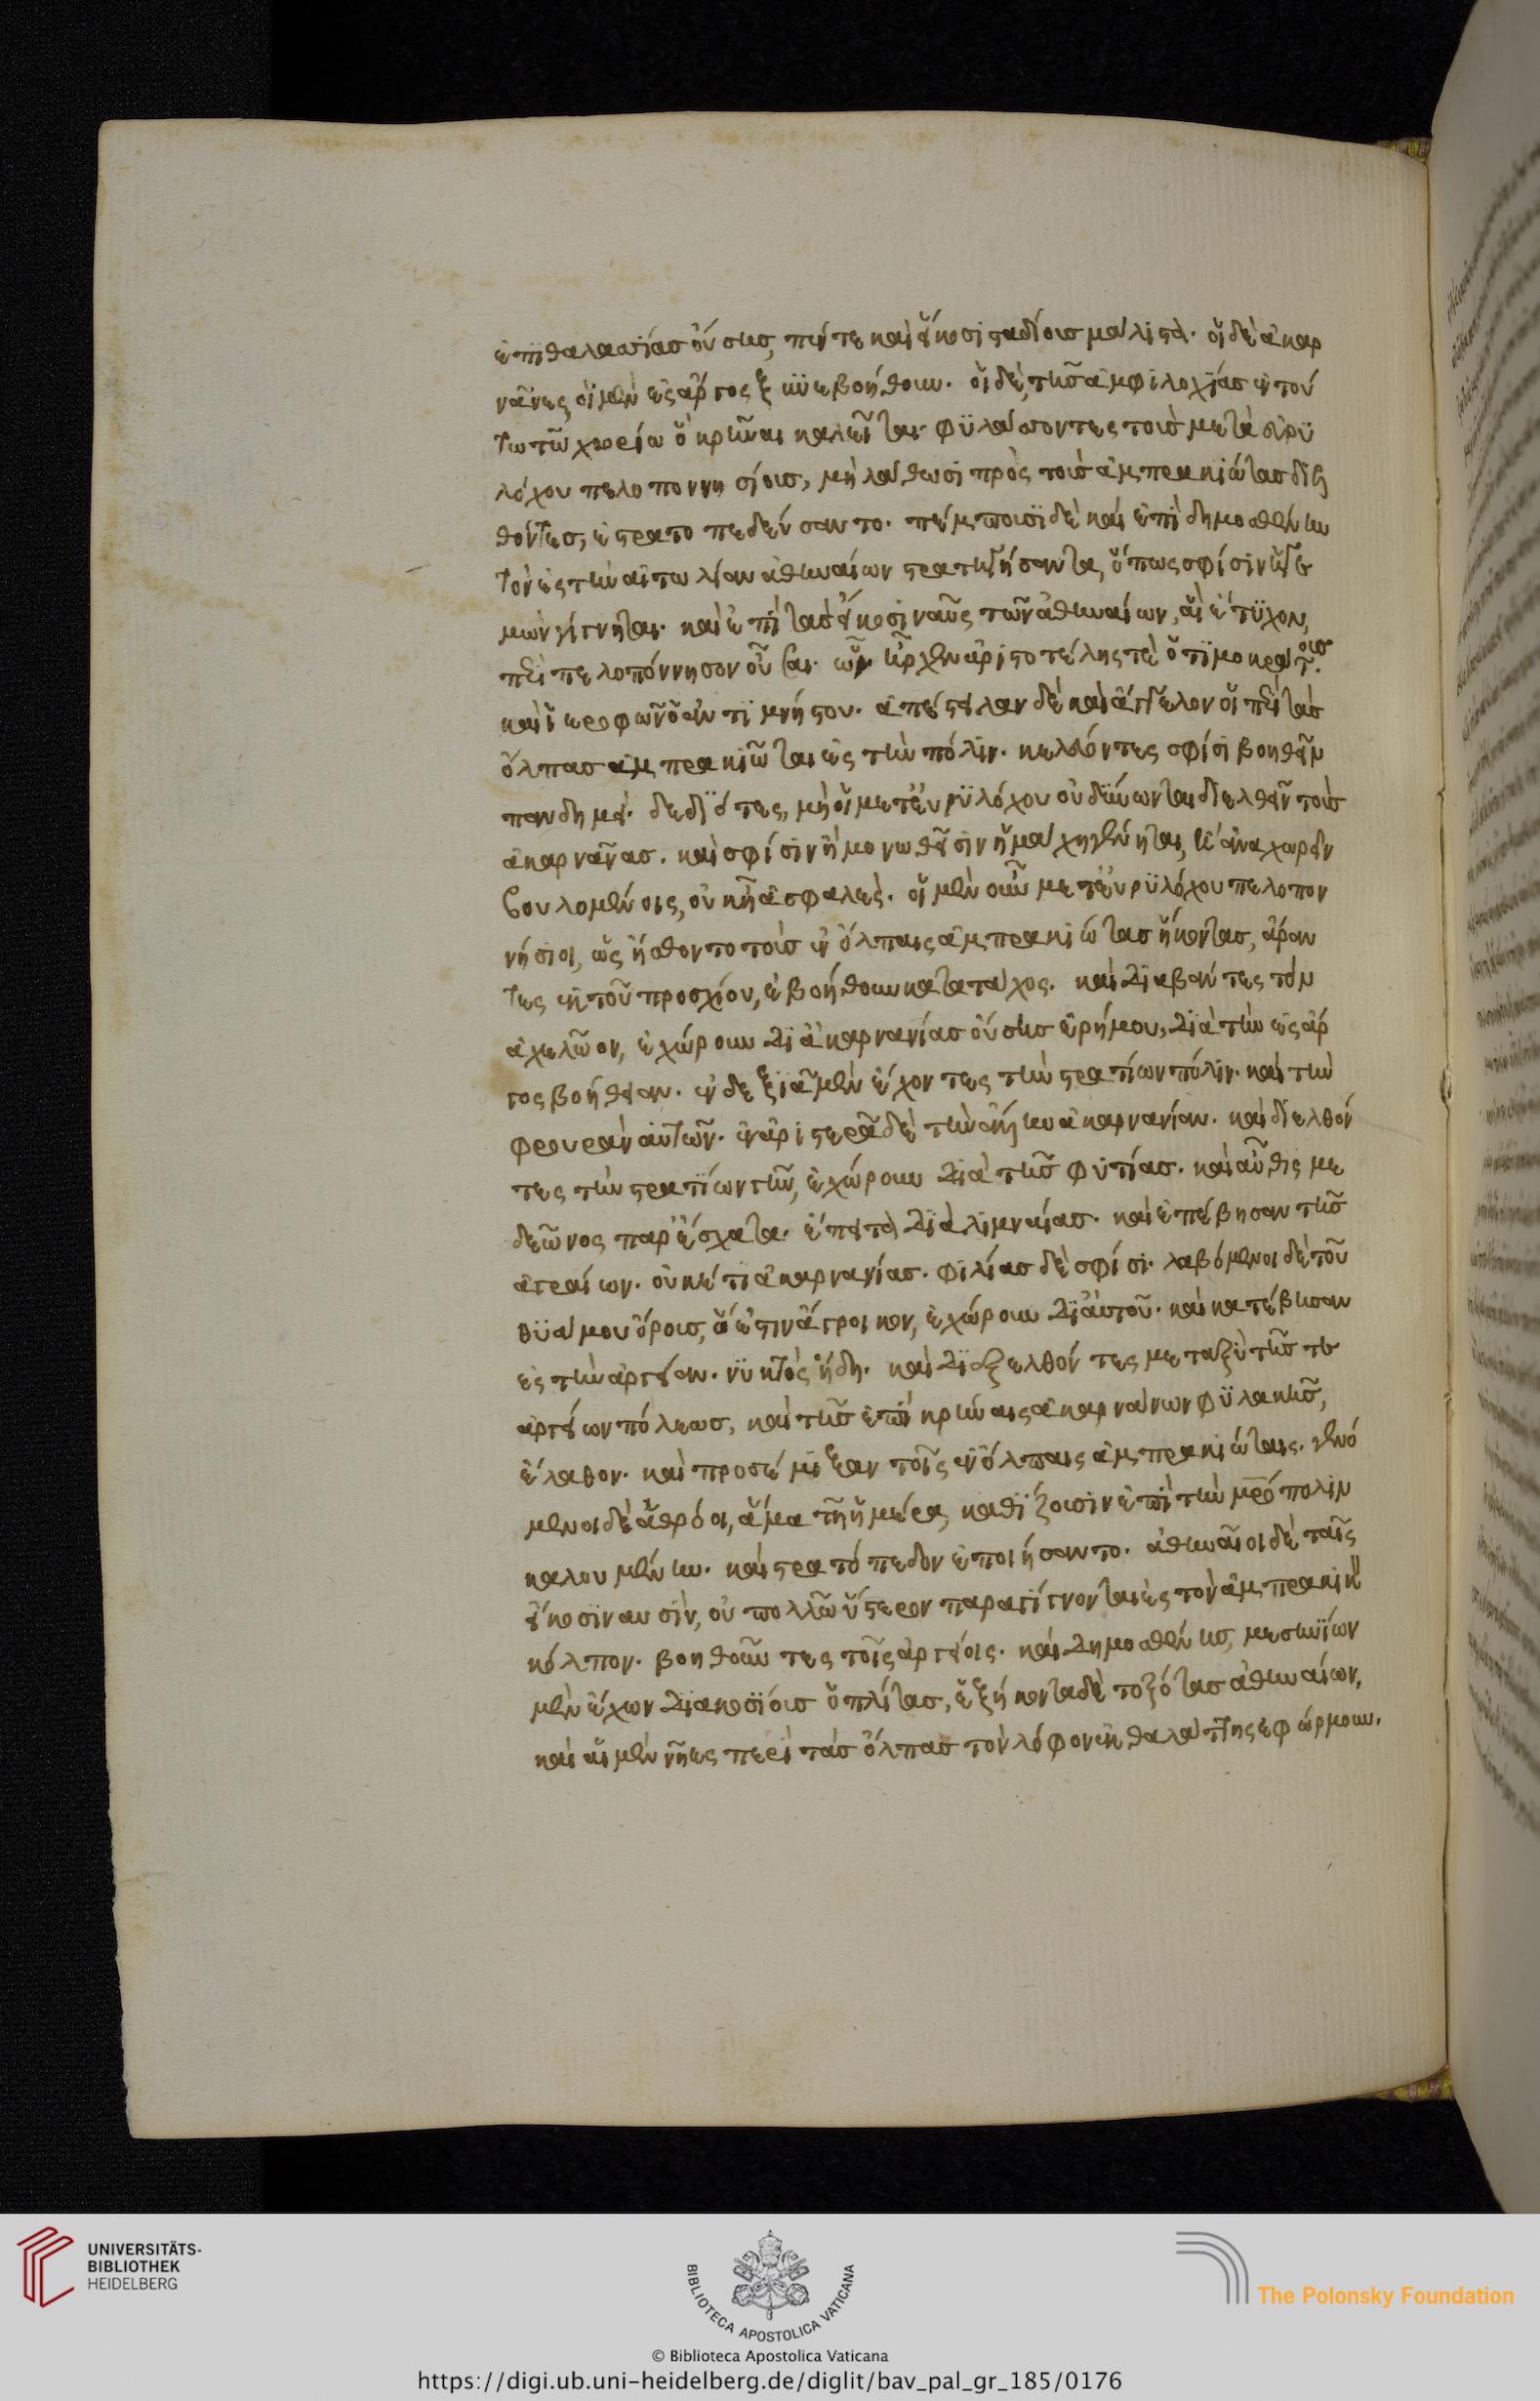 ἐπιθαλασσίας οὔσης, πέντε καὶ εἴκοσι σταδίοις μάλιστα. οἱ δὲ ἀκαρ
νᾶνες, οἱ μὲν ἐς ἄργος ξυνεβοήθουν. οἱ δὲ, τῆς ἀμφιλοχίας ἐν τού
τω τῶ χωρίω ὃ κρῆναι καλεῖται. φυλάσσοντες τοὺς μετὰ εὐρυ
λόχου πελοποννησίους, μὴ λάθωσι πρὸς τοὺς ἀμπρακιώτας διελ
θόντες, ἐστρατοπεδεύσαντο. πέμπουσι δὲ καὶ ἐπὶ δημοσθένην
τὸν ἐς τὴν αἰτωλίαν ἀθηναίων στρατηγήσαντα, ὅπως σφίσιν ἡγε
μὼν γίγνηται. καὶ ἐπὶ τὰς εἴκοσι ναῦς τῶν ἀθηναίων, αἳ ἔτυχον,
περὶ πελοπόννησον οὖσαι. ὧν ἦρχεν ἀριστοτέλης τὲ ὁ τιμοκράτους.
καὶ ἱεροφῶν ὁ ἀντιμνήστου. ἀπέστειλαν δὲ καὶ ἄγγελον οἱ περὶ τὰς
ὄλπας ἀμπρακιῶται ἐς τὴν πόλιν. κελεύοντες σφίσι βοηθεῖν
πανδημεί. δεδιότες, μὴ οἱ μετ' εὐρυλόχου οὐ δύνωνται διελθεῖν τοὺς
ἀκαρνᾶνας. καὶ σφίσιν ἢ μονωθεῖσιν ἡ μάχη γένηται, ἢ ἀναχωρεῖν
βουλομένοις, οὐκ ἦ ἀσφαλές. οἱ μὲν οὖν μετ' εὐρυλόχου πελοπον
νήσιοι, ὡς ἤσθοντο τοὺς ἐν ὄλπαις ἀμπρακιώτας ἥκοντας, ἄραν
τες ἐκ τοῦ προσχίου, ἐβοήθουν κατὰ τάχος. καὶ διαβάντες τὸν
ἀχελῶον, ἐχώρουν δι' ἀκαρνανίας οὔσης ἐρήμου, διὰ τὴν ἐς ἄρ
γος βοήθειαν. ἐν δεξιᾶ μὲν ἔχοντες τὴν στρατίων πόλιν. καὶ τὴν
φρουρὰν αὐτῶν. ἐν ἀριστερᾶ δὲ τὴν ἄλλην ἀκαρνανίαν. καὶ διελθόν
τες τὴν στρατίων γῆν, ἐχώρουν διὰ τῆς φυτίας. καὶ αὖθις με
δεῶνος παρ' ἔσχατα. ἔπειτα διὰ λιμναίας. καὶ ἐπέβησαν τῆς
ἀγραίων. οὐκέτι ἀκαρνανίας. φιλίας δὲ σφίσι. λαβόμενοι δὲ τοῦ
θυάμου ὄρους, ὅ ἐστιν ἄγροικον, ἐχώρουν δι' αὐτοῦ. καὶ κατέβησαν
ἐς τὴν ἀργείαν. νυκτὸς ἤδη. καὶ διεξελθόντες μεταξὺ τῆς τε
ἀργείων πόλεως, καὶ τῆς ἐπὶ κρήναις ἀκαρνάνων φυλακῆς,
ἔλαθον. καὶ προσέμιξαν τοῖς ἐν ὄλπαις ἀμπρακιώταις. γενό
μενοι δὲ ἁθρόοι, ἅμα τῆ ἡμέρα, καθίζουσιν ἐπὶ τὴν μρόπολιν
καλουμένην. καὶ στρατόπεδον ἐποιήσαντο. ἀθηναῖοι δὲ ταῖς
εἴκοσι ναυσὶν, οὐ πολλῶ ὕστερον παραγίγνονται ἐς τὸν ἀμπρακικὸν
κόλπον. βοηθοῦντες τοῖς ἀργείοις. καὶ δημοσθένης, μεσσηνίων
μὲν ἔχων διακοσίους ὁπλίτας, ἑξήκοντα δὲ τοξότας ἀθηναίων,
καὶ αἱ μὲν νῆες περὶ τὰς ὄλπας τὸν λόφον ἐκ θαλάττης ἐφώρμουν.
UNIVERSITÄTS-
BIBLIOTHEK
HEIDELBERG
BIBLIOTECA APOSTOLICA VATICANA
The Polonsky Foundation
© Biblioteca Apostolica Vaticana
https://digi.ub.uni-heidelberg.de/diglit/bav_pal_gr_185/0176